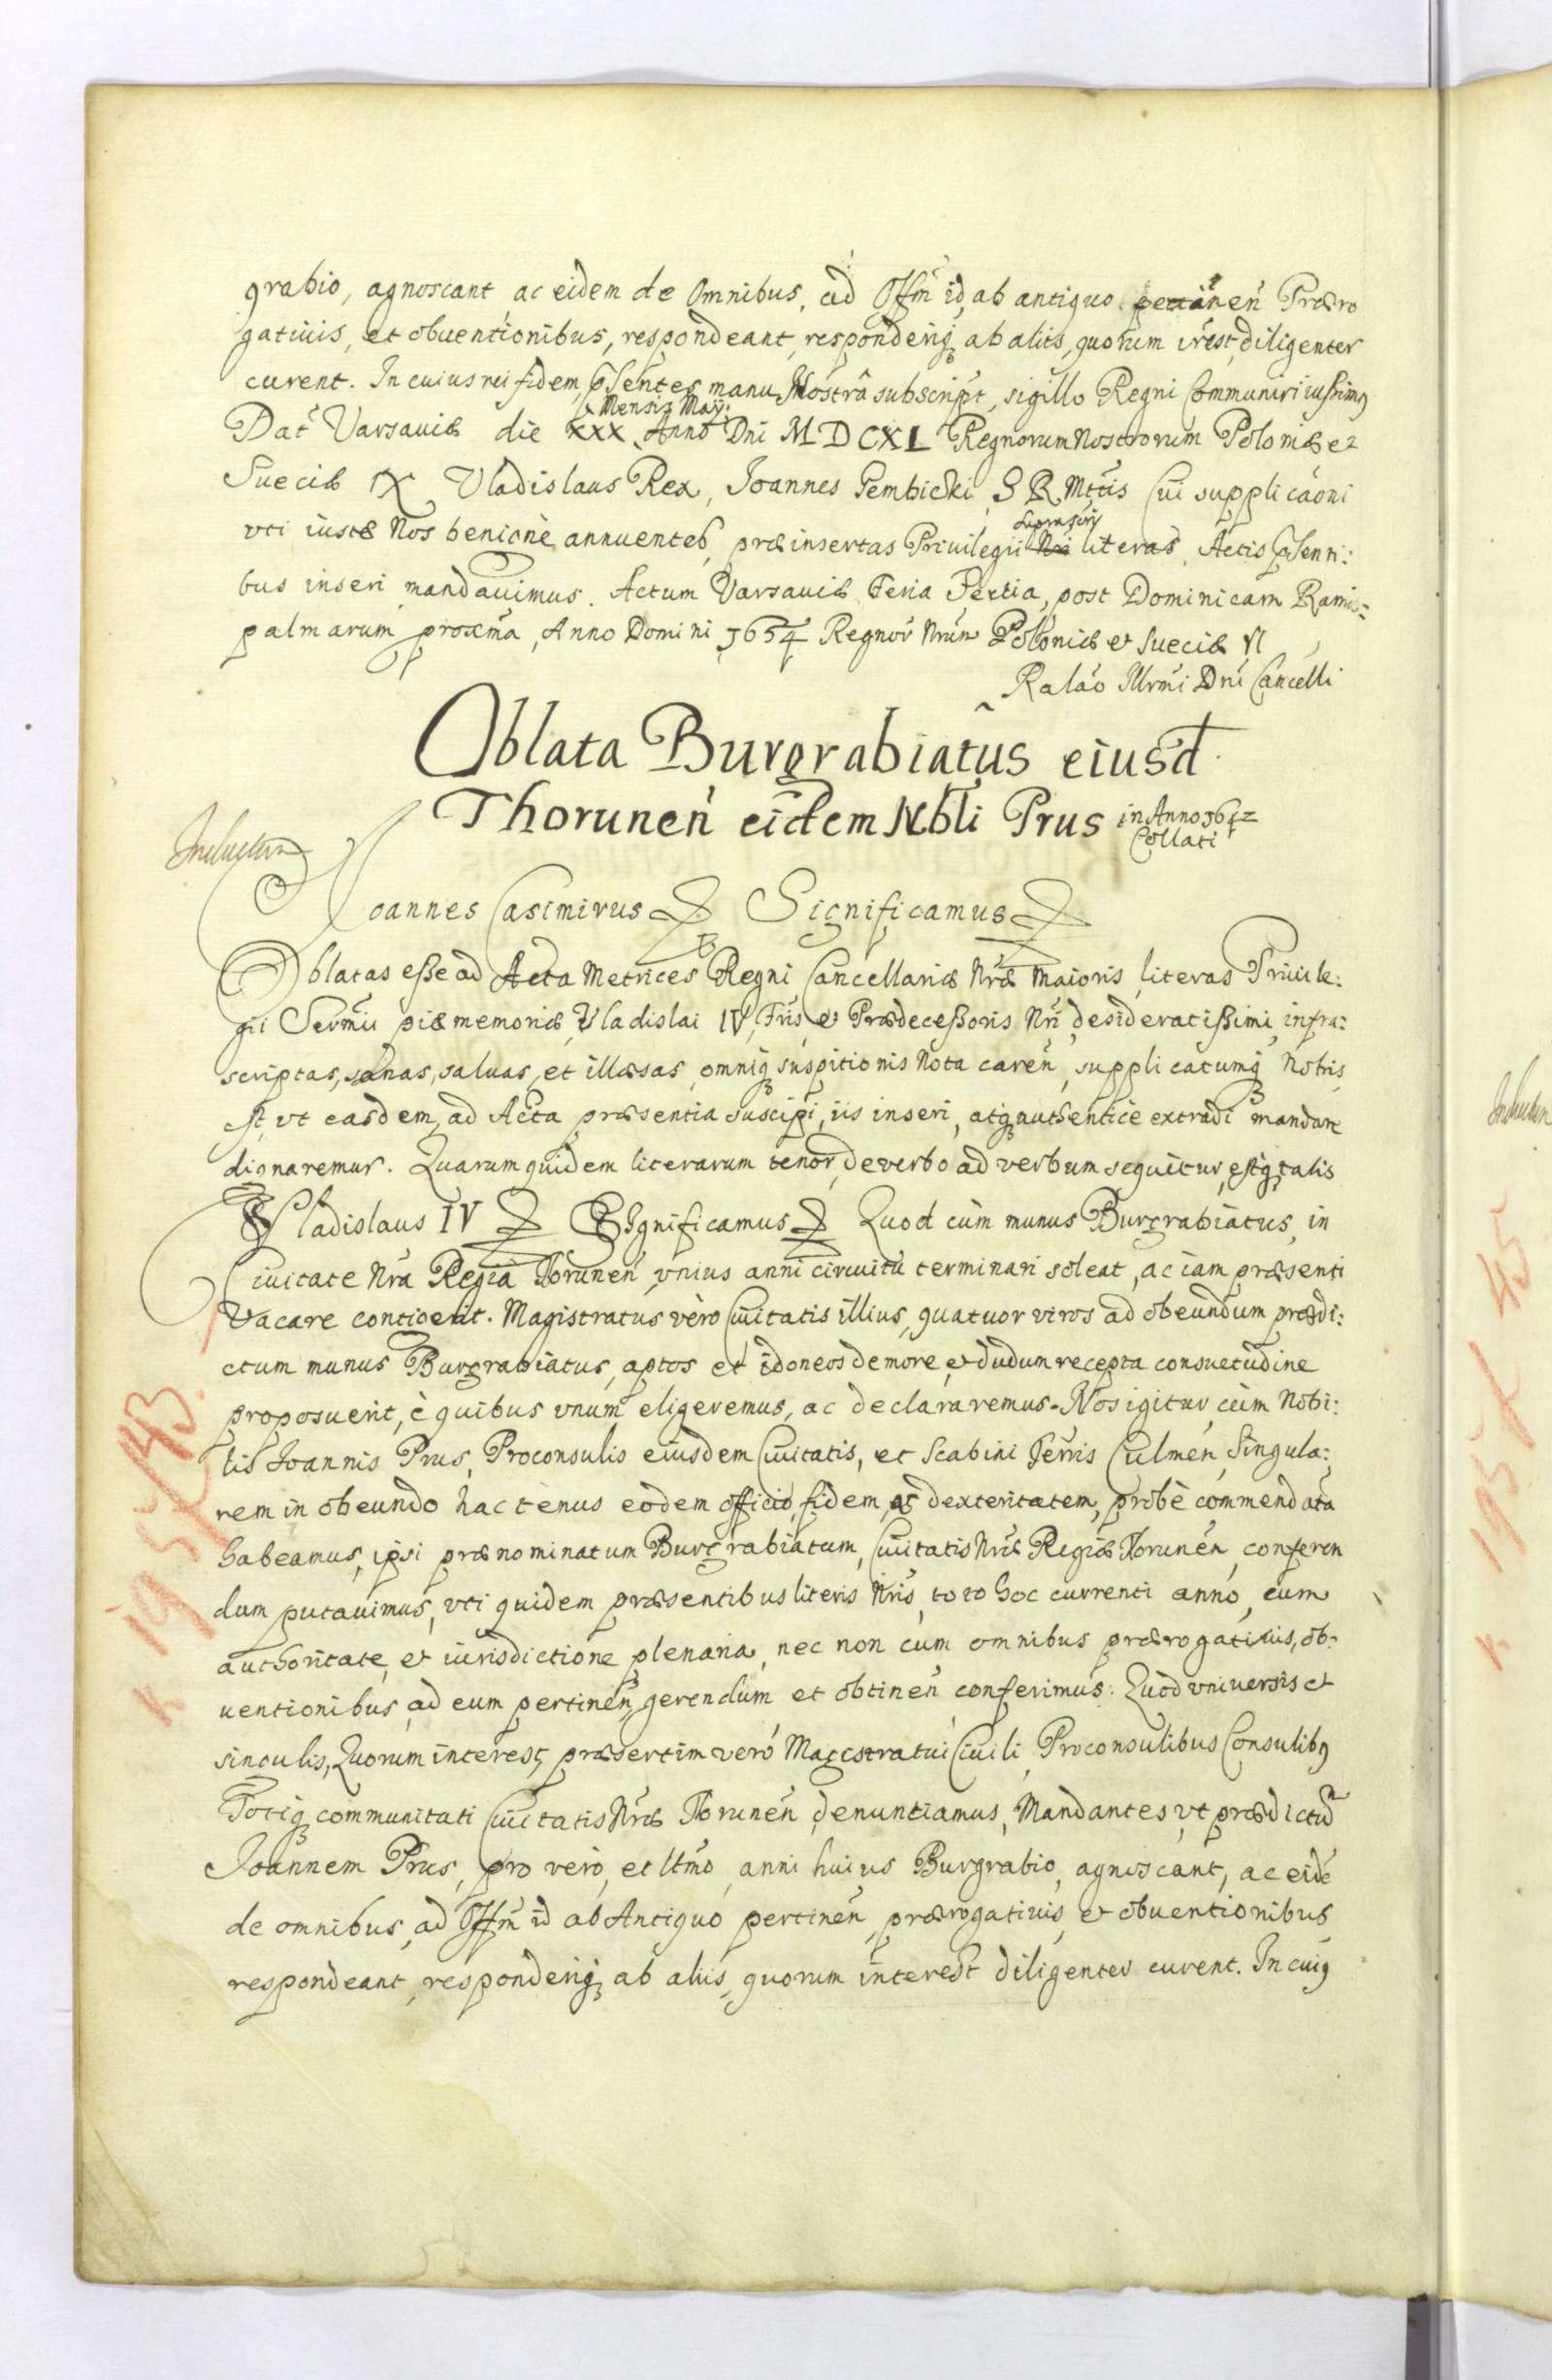 grabio, agnoscant ac eidem de Omnibus, ad Offm̃ id, ab antiquo pertinen̄ Præro
gatiuis, et obuentionibus, respondeant, responderiq; ab aliis, quorum irest, diligenter
curent. In cuius rei fidem, p̄sentes manu Nostrâ subscript, sigillo Regni Communiri iussimq
Mensis Maÿ.
Dat̄ Varsauiæ die XXX Anno Dni MDCXL Regnorum Nostrorum Poloniæ et
Sueciæ IX Vladislaus Rex, Joannes Gembicki S R Mttis Cui supplicaõni
suprascrip̄
vti iustæ Nos benignè annuentes, præinsertas Priuilegii literas, Actis p̄senti:
bus inseri mandauimus. Actum Varsauiæ Feria Tertia, post Dominicam Ramis:
palmarum proxm̃a, Anno Domini 1654 Regnor̄ Nrũn Poloniæ et Sueciæ VI
Ralaõ Illrm̃i Dni Cancelli
Oblata Burgrabiatus eiusd
Thorunen̄ eidem Nbli Prus in Anno 1642
Collati
Inductum
Joannes Casimirus Significamus
Oblatas esse ad Acta Metrices Regni Cancellariæ Nræ Maioris literas Priuile:
gii Serm̃ii piæ memoriæ Vladislai IV, Fr̃is et Prædecessoris Nr̃i desideratissimi, infra:
scriptas, sanas, saluas, et illæsas, omniq; suspitionis Nota caren̄, supplicatumq; Nobis
est, vt easdem, ad Acta præsentia suscipi, iis inseri, atq; authentice extradi mandare
dignaremur. Quarum quidem literarum tenor, de verbo ad verbum sequitur, estq; talis
Vladislaus IV Significamus Quod cùm munus Burgrabiatus, in
Ciuitate Nr̃a Regia Torunen̄, vnius anni circuitu terminari soleat, ac iam præsenti
vacare contigerit. Magistratus vèro Ciuitatis illius, quatuor viros ad obeundum prædi:
ctum munus Burgrabiatus, aptos et idoneos de more, et dudum recepta consuetudine
proposuerit, è quibus vnum eligeremus, ac declararemus. Nos igitur, cùm Nobi:
lis Joannis Prus, Proconsulis eiusdem Ciuitatis, et Scabini Terris Culmen̄, Singula:
rem in obeundo hactenus eodem officio, fidem, ac dexteritatem, probè commendatã
habeamus, ipsi prænominatum Burgrabiatum, Ciuitatis Nræ Regiæ Torunen̄, conferen
dum putauimus, vti quidem præsentibus literis Nr̃is, toto hoc currenti anno, cum
authoritate, et iurisdictione plenaria, nec non cum omnibus prærogatiuis, ob:
uentionibus, ad eum pertinen̄, gerendum et obtinen̄ conferimus. Quòd vniuersis et
singulis, Quorum interest, præsertim verò Magistratui Ciuili, Proconsulibus Consulibq
Totiq; communitati Ciuitatis Nræ Torunen̄, denuntiamus, Mandantes, vt prædictũ
Joannem Prus, pro vero, et ltm̃o, anni huius Burgrabio, agnoscant, ac eidẽ
de omnibus, ad Offm̃ id ab Antiquo pertinen̄, prærogatiuis, et obuentionibus
respondeant, responderiq; ab aliis, quorum interest diligenter curent. In cuiq